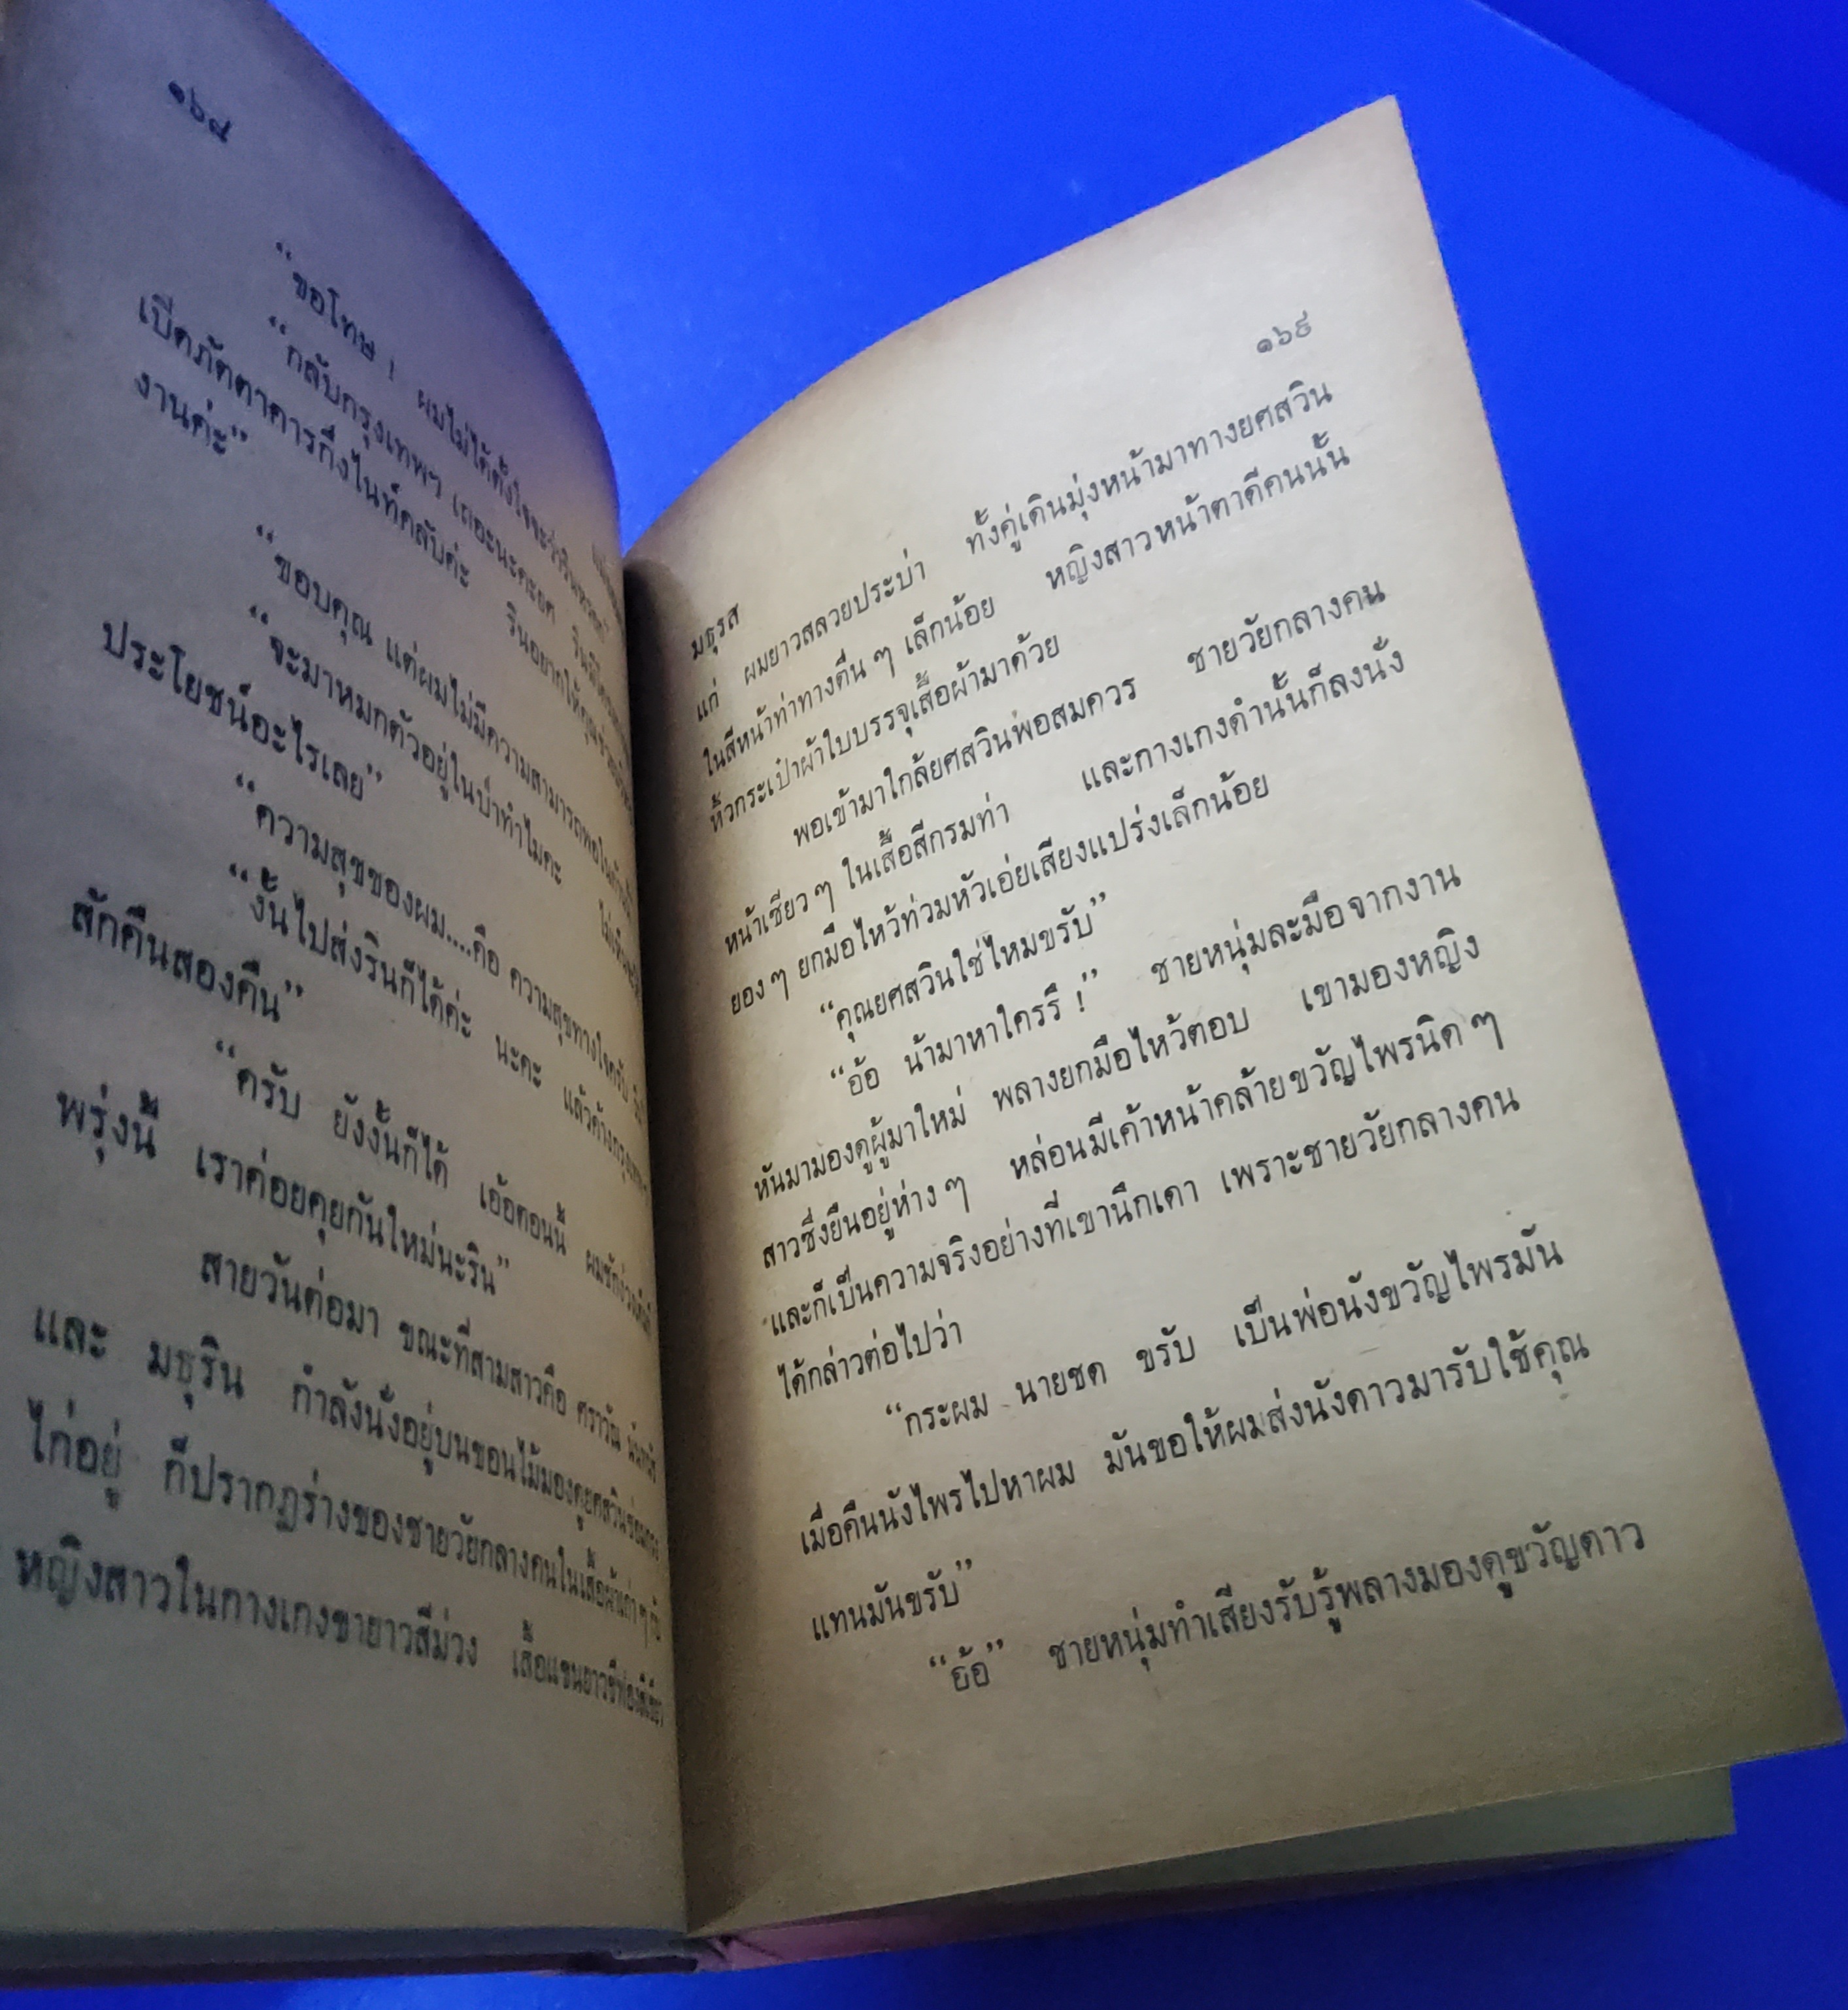 ๑๖๘
“ขอโทษ ! ผมไม่ได้ตั้งใจจะว่ารินหรอก”
“กลับกรุงเทพฯ เถอะนะคะยศ
เปิดภัตตาคารกึ่งไนท์คลับค่ะ รินอยากให้คุณ
งานค่ะ”
“ขอบคุณ แต่ผมไม่มีความสามารถพอ
“จะมาหมกตัวอยู่ในป่าทำไมคะ
ประโยชน์อะไรเลย”
“ความสุขของผม....คือ ความสุขทางใจครับ
“งั้นไปส่งรินก็ได้ค่ะ นะคะ แล้วค้างกรุงเทพฯ
สักคืนสองคืน”
“ครับ ยังงั้นก็ได้ เอ้อตอนนี้
พรุ่งนี้ เราค่อยคุยกันใหม่นะริน”
สายวันต่อมา ขณะที่สามสาวคือ
และ มธุริน กำลังนั่งอยู่บนขอนไม้มองดูยศสวินซ่อมกรง
ไก่อยู่ ก็ปรากฏร่างของชายวัยกลางคนในเสื้อผ้าเก่า ๆ กับ
หญิงสาวในกางเกงขายาวสีม่วง เสื้อแขนยาว
๑๖๙
มธุรส
แก่ ผมยาวสลวยประบ่า ทั้งคู่เดินมุ่งหน้ามาทางยศสวิน
ในสีหน้าท่าทางตื่น ๆ เล็กน้อย หญิงสาวหน้าตาดีคนนั้น
หิ้วกระเป๋าผ้าใบบรรจุเสื้อผ้ามาด้วย
พอเข้ามาใกล้ยศสวินพอสมควร ชายวัยกลางคน
หน้าเซียว ๆ ในเสื้อสีกรมท่า และกางเกงดำนั้นก็ลงนั่ง
ยอง ๆ ยกมือไหว้ท่วมหัวเอ่ยเสียงแปร่งเล็กน้อย
“คุณยศสวินใช่ไหมขรับ”
“อ้อ น้ามาหาใครรึ !” ชายหนุ่มละมือจากงาน
หันมามองดูผู้มาใหม่ พลางยกมือไหว้ตอบ เขามองหญิง
สาวซึ่งยืนอยู่ห่าง ๆ หล่อนมีเค้าหน้าคล้ายขวัญไพรนิด ๆ
และก็เป็นความจริงอย่างที่เขานึกเดา เพราะชายวัยกลางคน
ได้กล่าวต่อไปว่า
“กระผม นายชด ขรับ เป็นพ่อนังขวัญไพรมัน
เมื่อคืนนังไพรไปหาผม มันขอให้ผมส่งนังดาวมารับใช้คุณ
แทนมันขรับ”
“อ้อ” ชายหนุ่มทำเสียงรับรู้พลางมองดูขวัญดาว